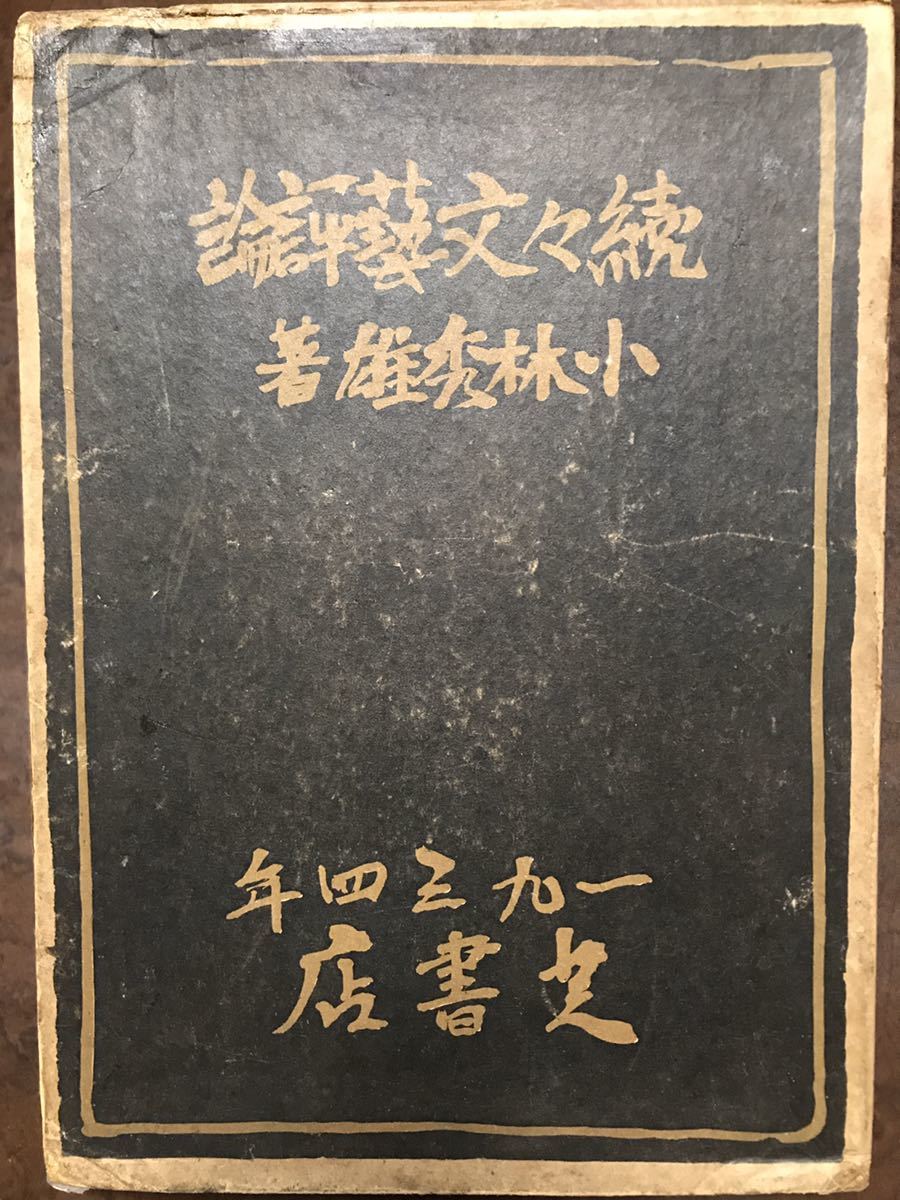 続々文藝評論
小林秀雄著
一九三四年
芝書店